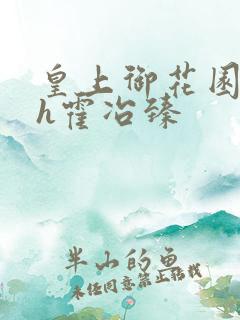 皇上御花园
h霍冶臻
半山的鱼
未经同意禁止转载